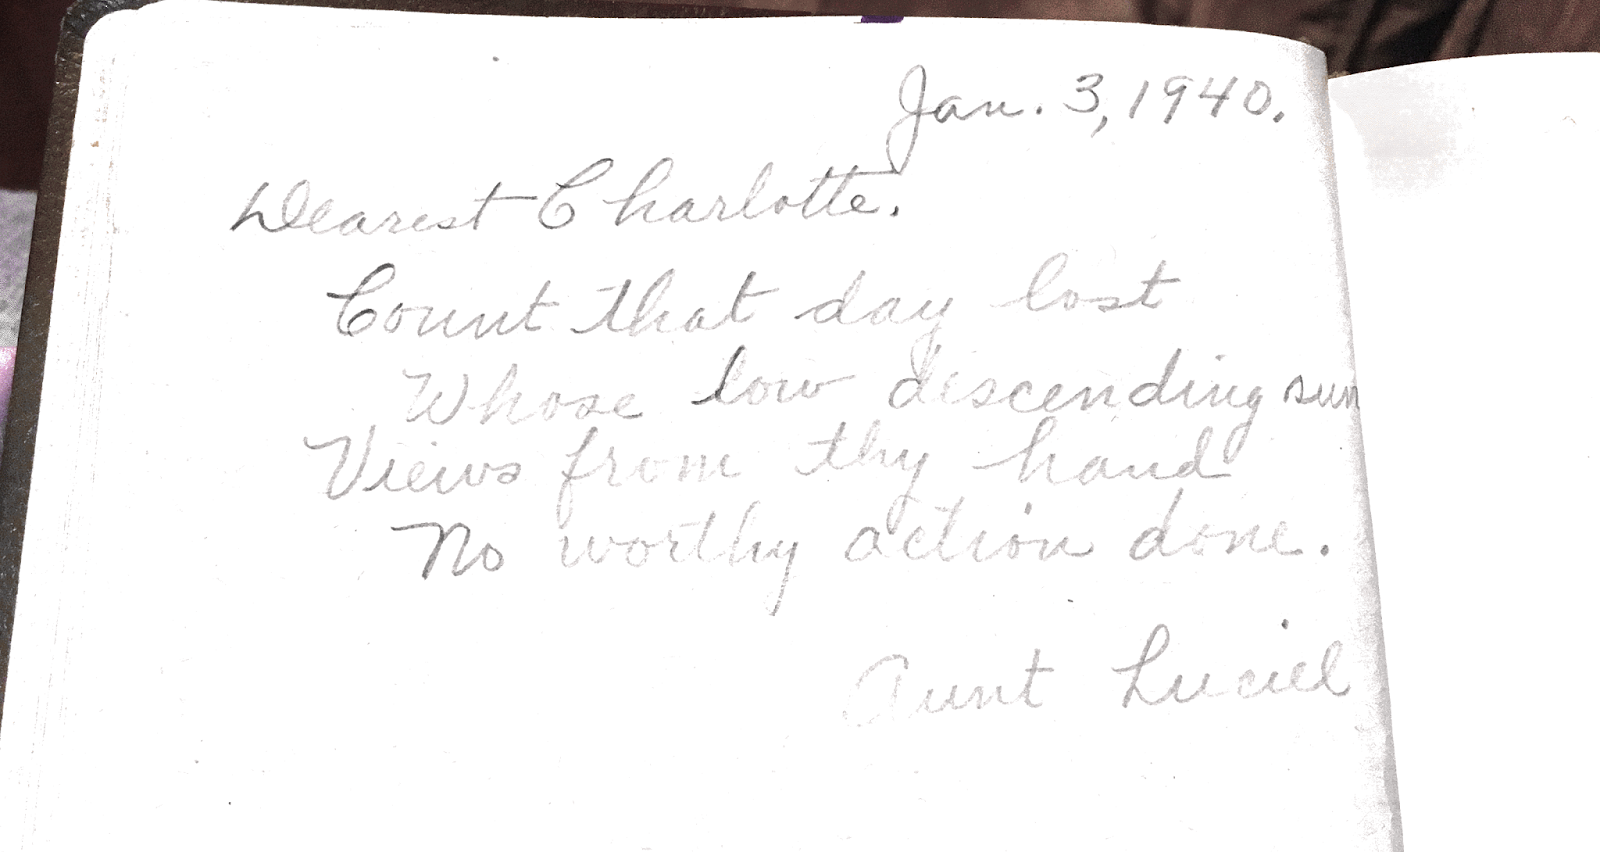 Jan. 3, 1940.
Dearest Charlotte.
Count that day lost
Whose low descending sun
Views from thy hand
No worthy action done.
Aunt Luciel